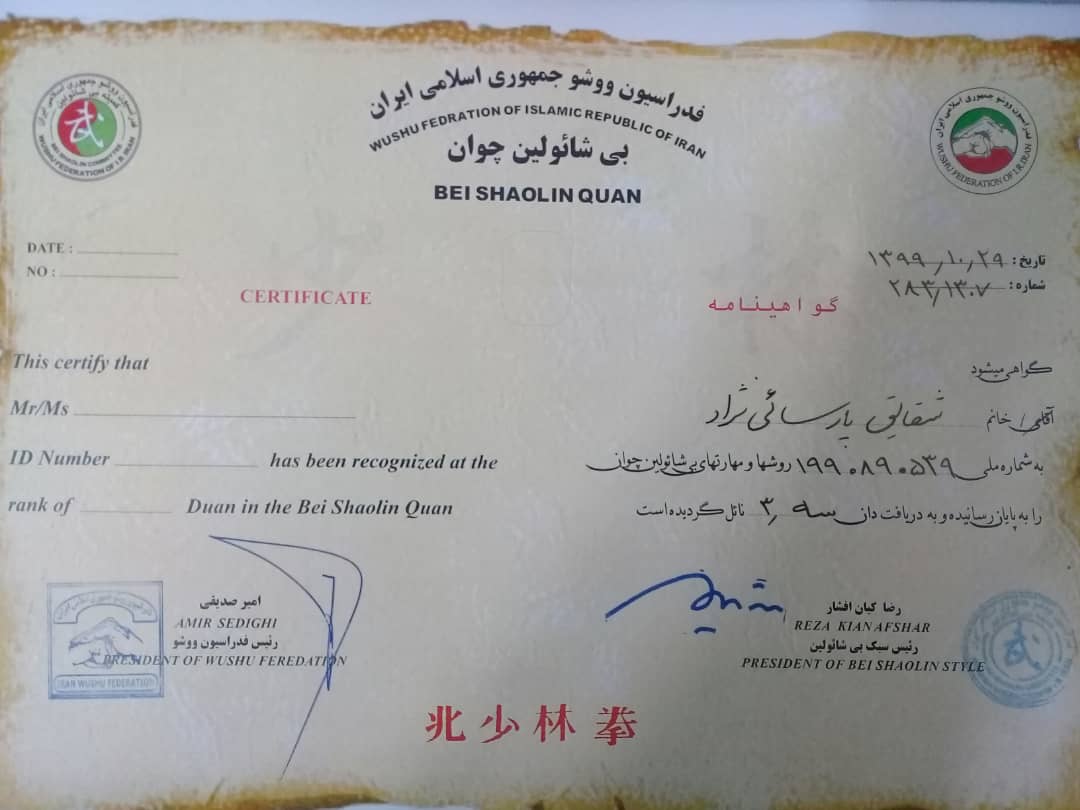 فدراسیون ووشو جمهوری اسلامی ایران
WUSHU FEDRATION OF ISLAMIC REPUBLIC OF IRAN
بی شائولین چوان
BEI SHAOLIN QUAN
BEI SHAOLIN COMMITTEE
WUSHU FEDERATION OF I.R.IRAN
فدراسیون ووشو جمهوری اسلامی ایران
WUSHU FEDERATION OF I.R.IRAN
DATE :
NO :
تاریخ : ۱۳۹۹/۱۰/۲۹
شماره : ۲۸۳/۱۳۰۷
CERTIFICATE
گواهینامه
This certify that
Mr/Ms
ID Number has been recognized at the
rank of Duan in the Bei Shaolin Quan
گواهی میشود
آقای / خانم شقایق پارسائی نژاد
به شماره ملی ۱۹۹۰۸۹۰۵۳۹ روشها و مهارتهای بی شائولین چوان
را به پایان رسانیده و به دریافت دان سه ۳ نائل گردیده است
امیر صدیقی
AMIR SEDIGHI
رئیس فدراسیون ووشو
PRESIDENT OF WUSHU FEREDATION
IRAN WUSHU FEDERATION
رضا کیان افشار
REZA KIANAFSHAR
رئیس سبک بی شائولین
PRESIDENT OF BEI SHAOLIN STYLE
兆少林拳